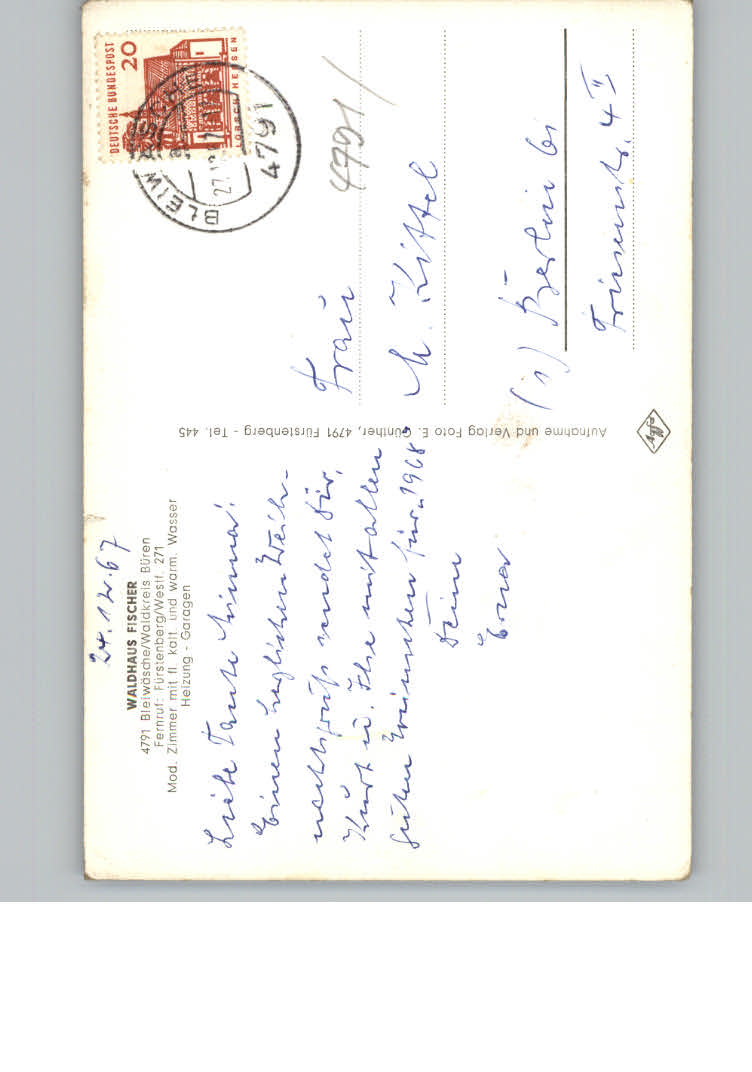 24.12.67
WALDHAUS FISCHER
4791 Bleiwäsche/Waldkreis Büren
Fernruf: Fürstenberg/Westf. 271
Mod. Zimmer mit fl. kalt. und warm. Wasser
Heizung - Garagen
Liebe Tante Minna!
Einen herzlichen Weih-
nachtsgruß sendet Dir,
Kurt u. Ilse mit allen
guten Wünschen für 1968
Deine
Erna
Aufnahme und Verlag Foto E. Günther, 4791 Fürstenberg - Tel. 445
Agfa
DEUTSCHE BUNDESPOST
20
LORSCH HESSEN
BLEIWÄSCHE
4791
4791/
Frau
M. Kittel
(1) Berlin 61
Friesenstr. 4 II